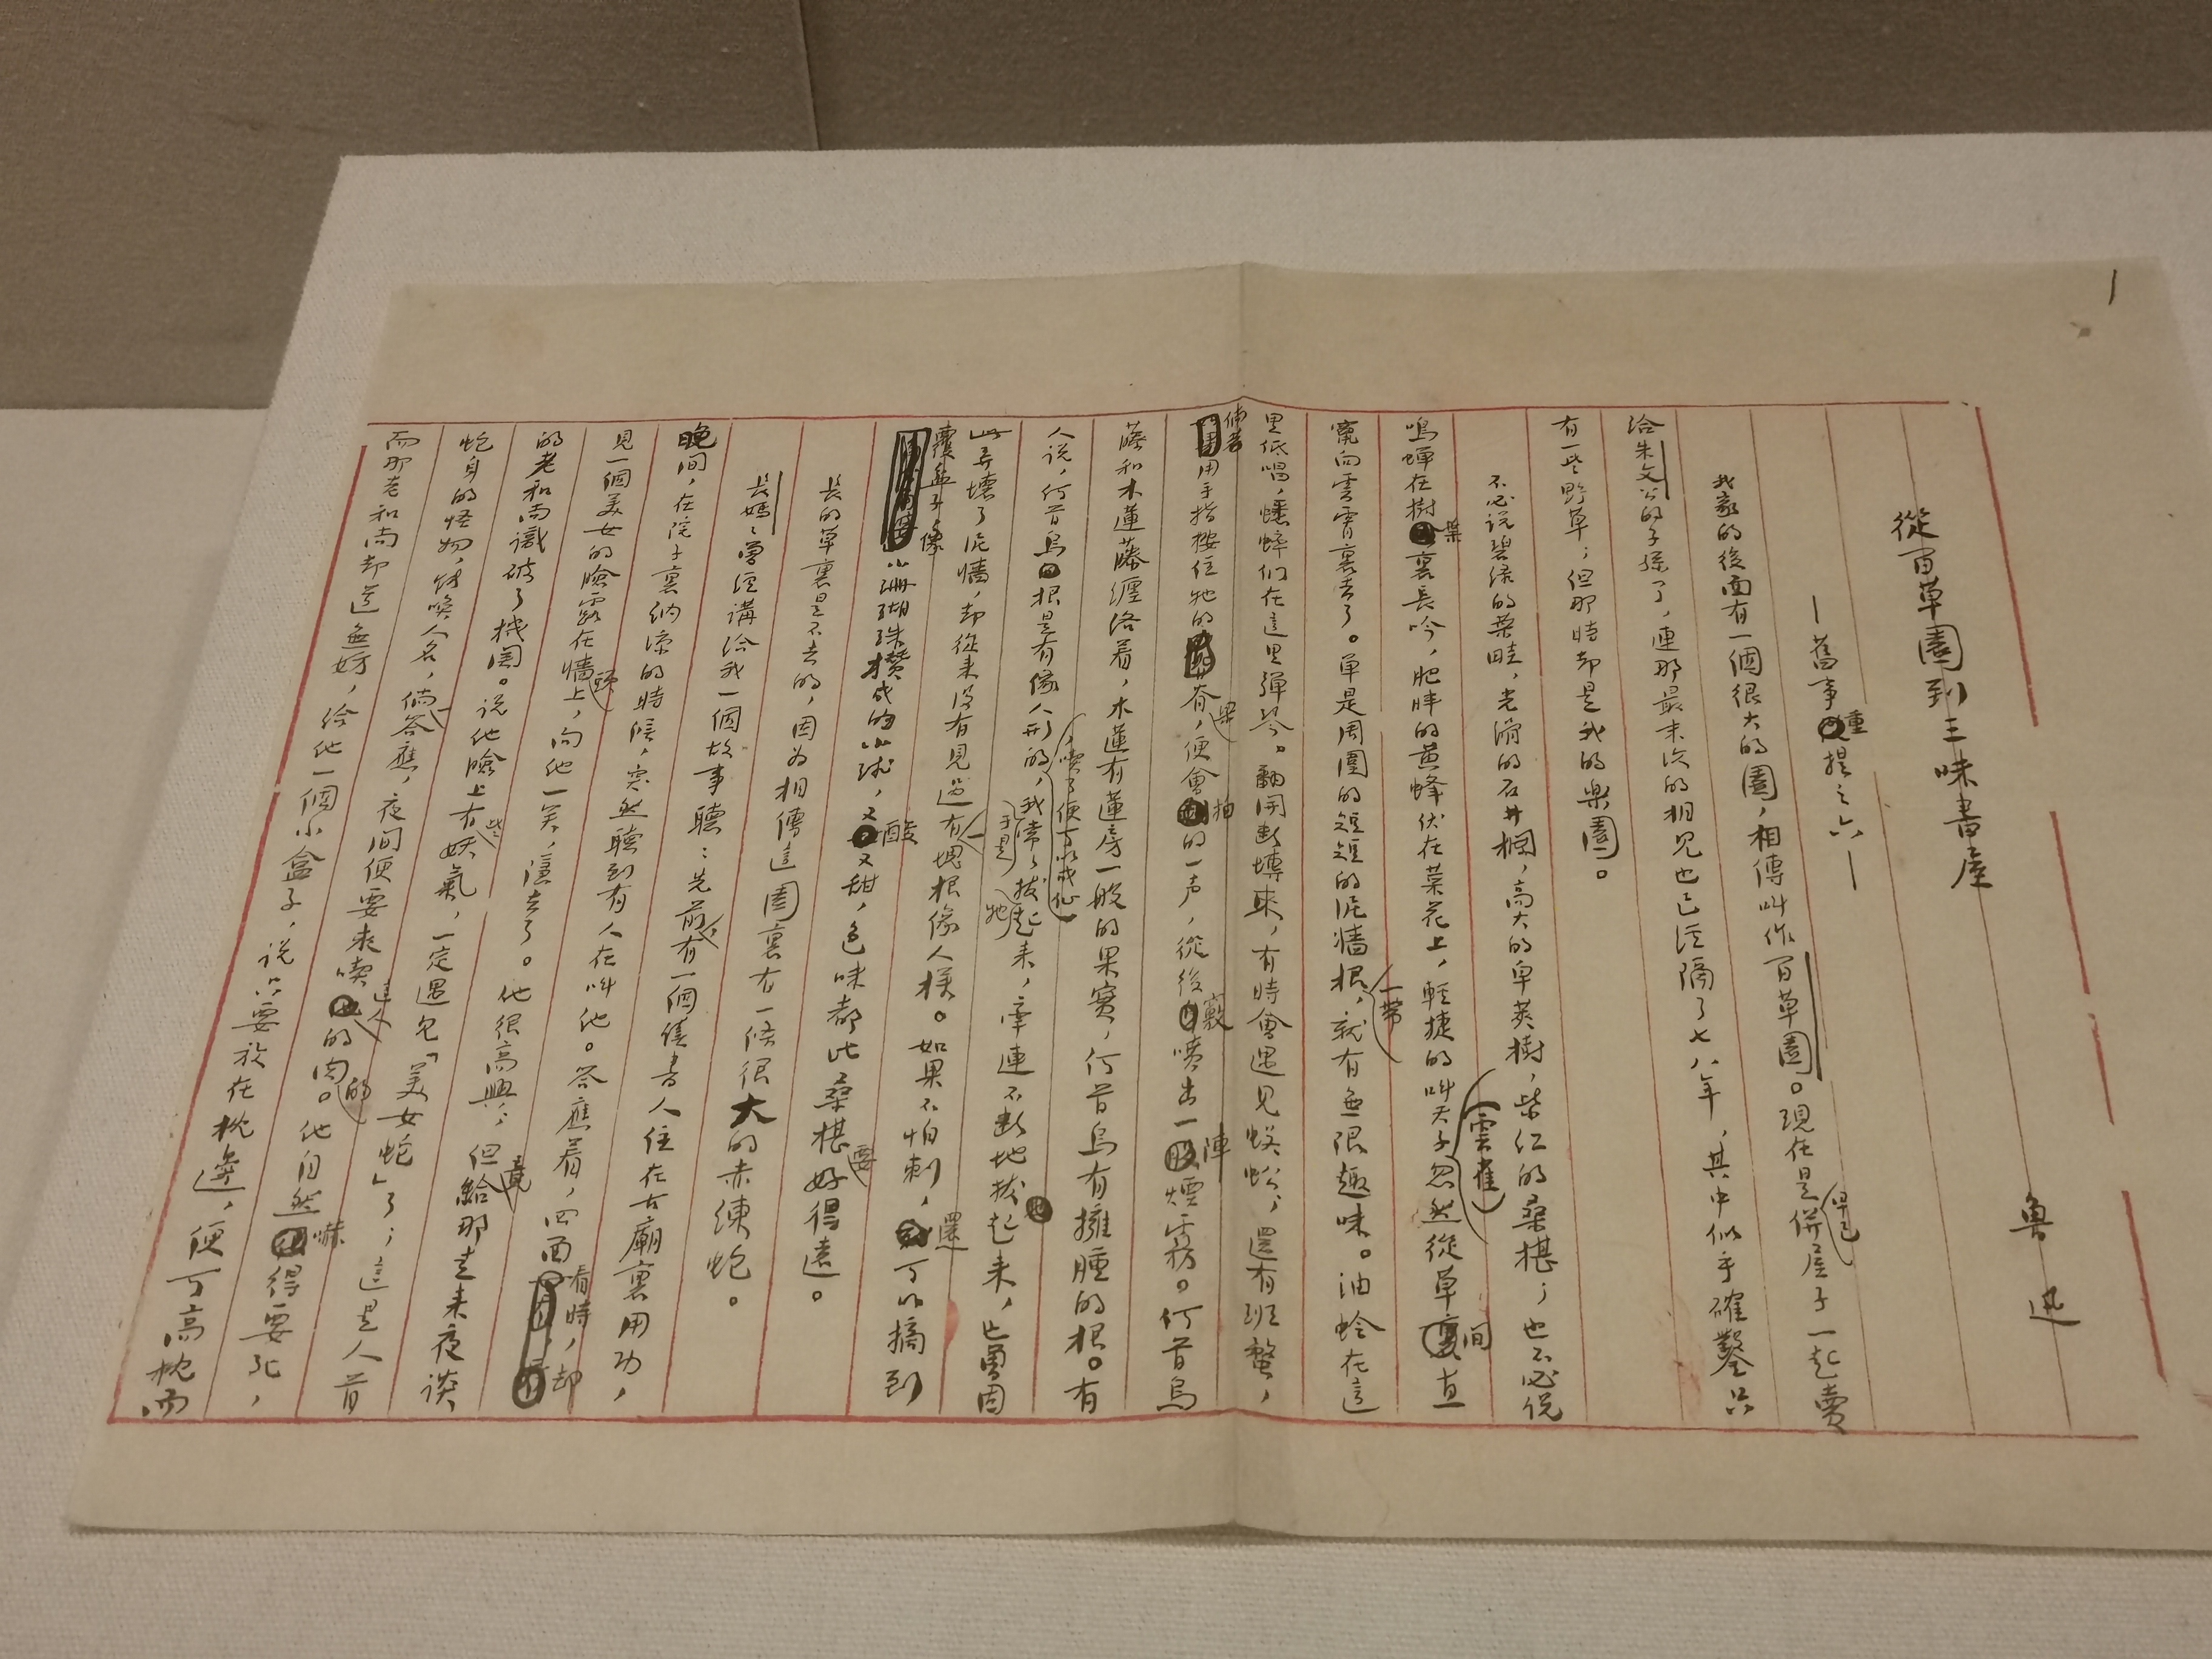 1
從百草園到三味書屋
—舊事重提之六—
魯迅
我家的後面有一個很大的園,相傳叫作百草園。現在是早已併屋子一起賣
給朱文公的子孫了,連那最末次的相見也已經隔了七八年,其中似乎確鑿只
有一些野草;但那時却是我的樂園。
不必说碧綠的菜畦,光滑的石井欄,高大的皁莢樹,紫红的桑椹;也不必说
鳴蟬在樹葉裏長吟,肥胖的黄蜂伏在菜花上,輕捷的叫天子(雲雀)忽然從草間直
竄向雲霄裏去了。單是周圍的短短的泥墻根一带,就有無限趣味。油蛉在這
里低唱,蟋蟀们在這里彈琴。翻開斷塼來,有時會遇見蜈蚣;還有斑蝥,
倘若用手指按住牠的脊梁,便會拍的一声,從後竅噴出一陣煙霧。何首烏
藤和木蓮藤缠络着,木蓮有蓮房一般的果實,何首烏有擁腫的根。有
人说,何首烏根是有像人形的,喫了便可以成仙,我常常拔牠起来,牽連不断地拔起来,也曾因
此弄壞了泥墻,却從来没有見過有一塊根像人樣。如果不怕刺,還可以摘到
覆盆子,像小珊瑚珠攢成的小球,又酸又甜,色味都比桑椹要好得遠。
長的草裏是不去的,因为相傳這園裏有一條很大的赤練蛇。
長媽媽曾經講给我一個故事聽:先前,有一個讀書人住在古廟裏用功,
晚间,在院子裏纳凉的時候,突然聽到有人在叫他。答應着,四面看時,却
見一個美女的臉露在墻頭上,向他一笑,隱去了。他很高興;但竟給那走来夜谈
的老和尚識破了機関。说他臉上有些妖氣,一定遇见「美女蛇」了;這是人首
蛇身的怪物,能唤人名,倘一答應,夜间便要来喫這人的肉的。他自然嚇得要死,
而那老和尚却道無妨,给他一個小盒子,说只要放在枕邊,便可高枕而